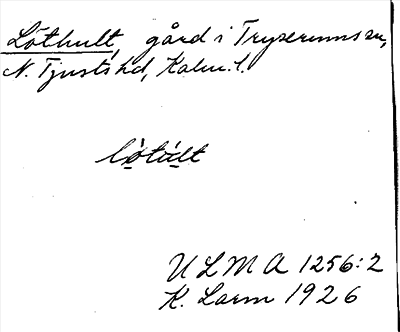 Löthult, gård i Tryserums sn,
N. Tjusts hd, Kalm. l.
lø̀túlt
ULMA 1256:2
K. Larm 1926